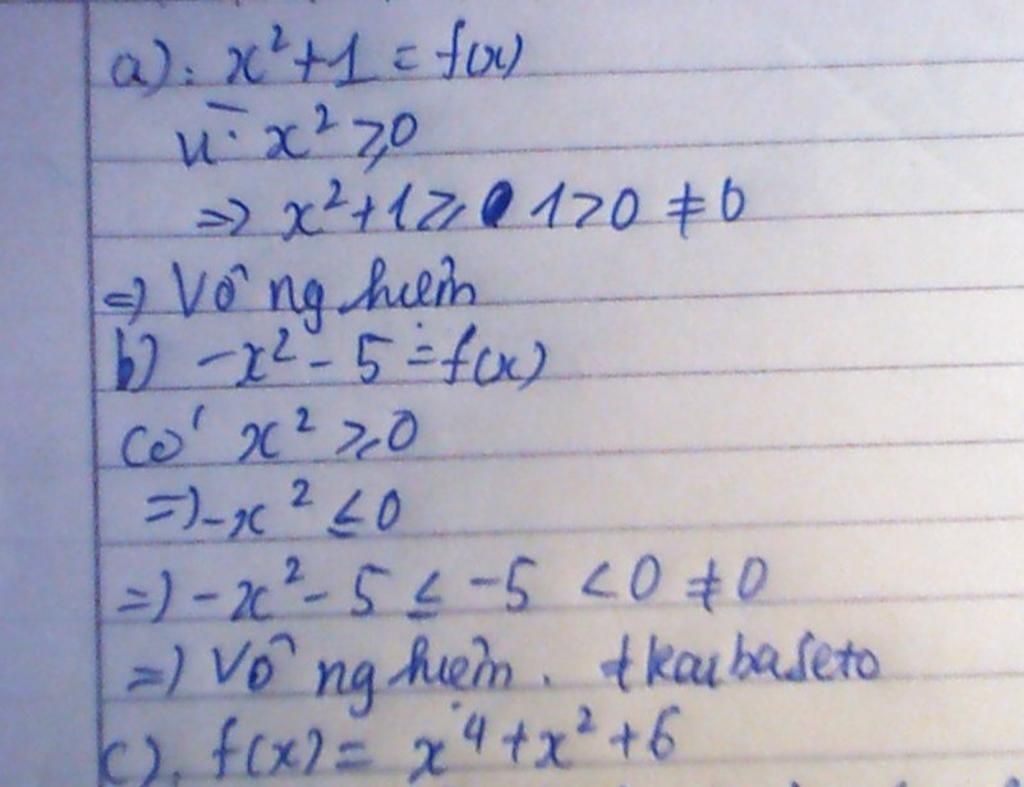 a). x²+1 = f(x)
Vì x² ≥ 0
=> x²+1 ≥ 1 > 0 ≠ 0
=> Vô nghiệm
b) -x² - 5 = f(x)
có x² ≥ 0
=> -x² ≤ 0
=> -x² - 5 ≤ -5 < 0 ≠ 0
=> Vô nghiệm. +kaibaseto
c). f(x) = x⁴+x²+6